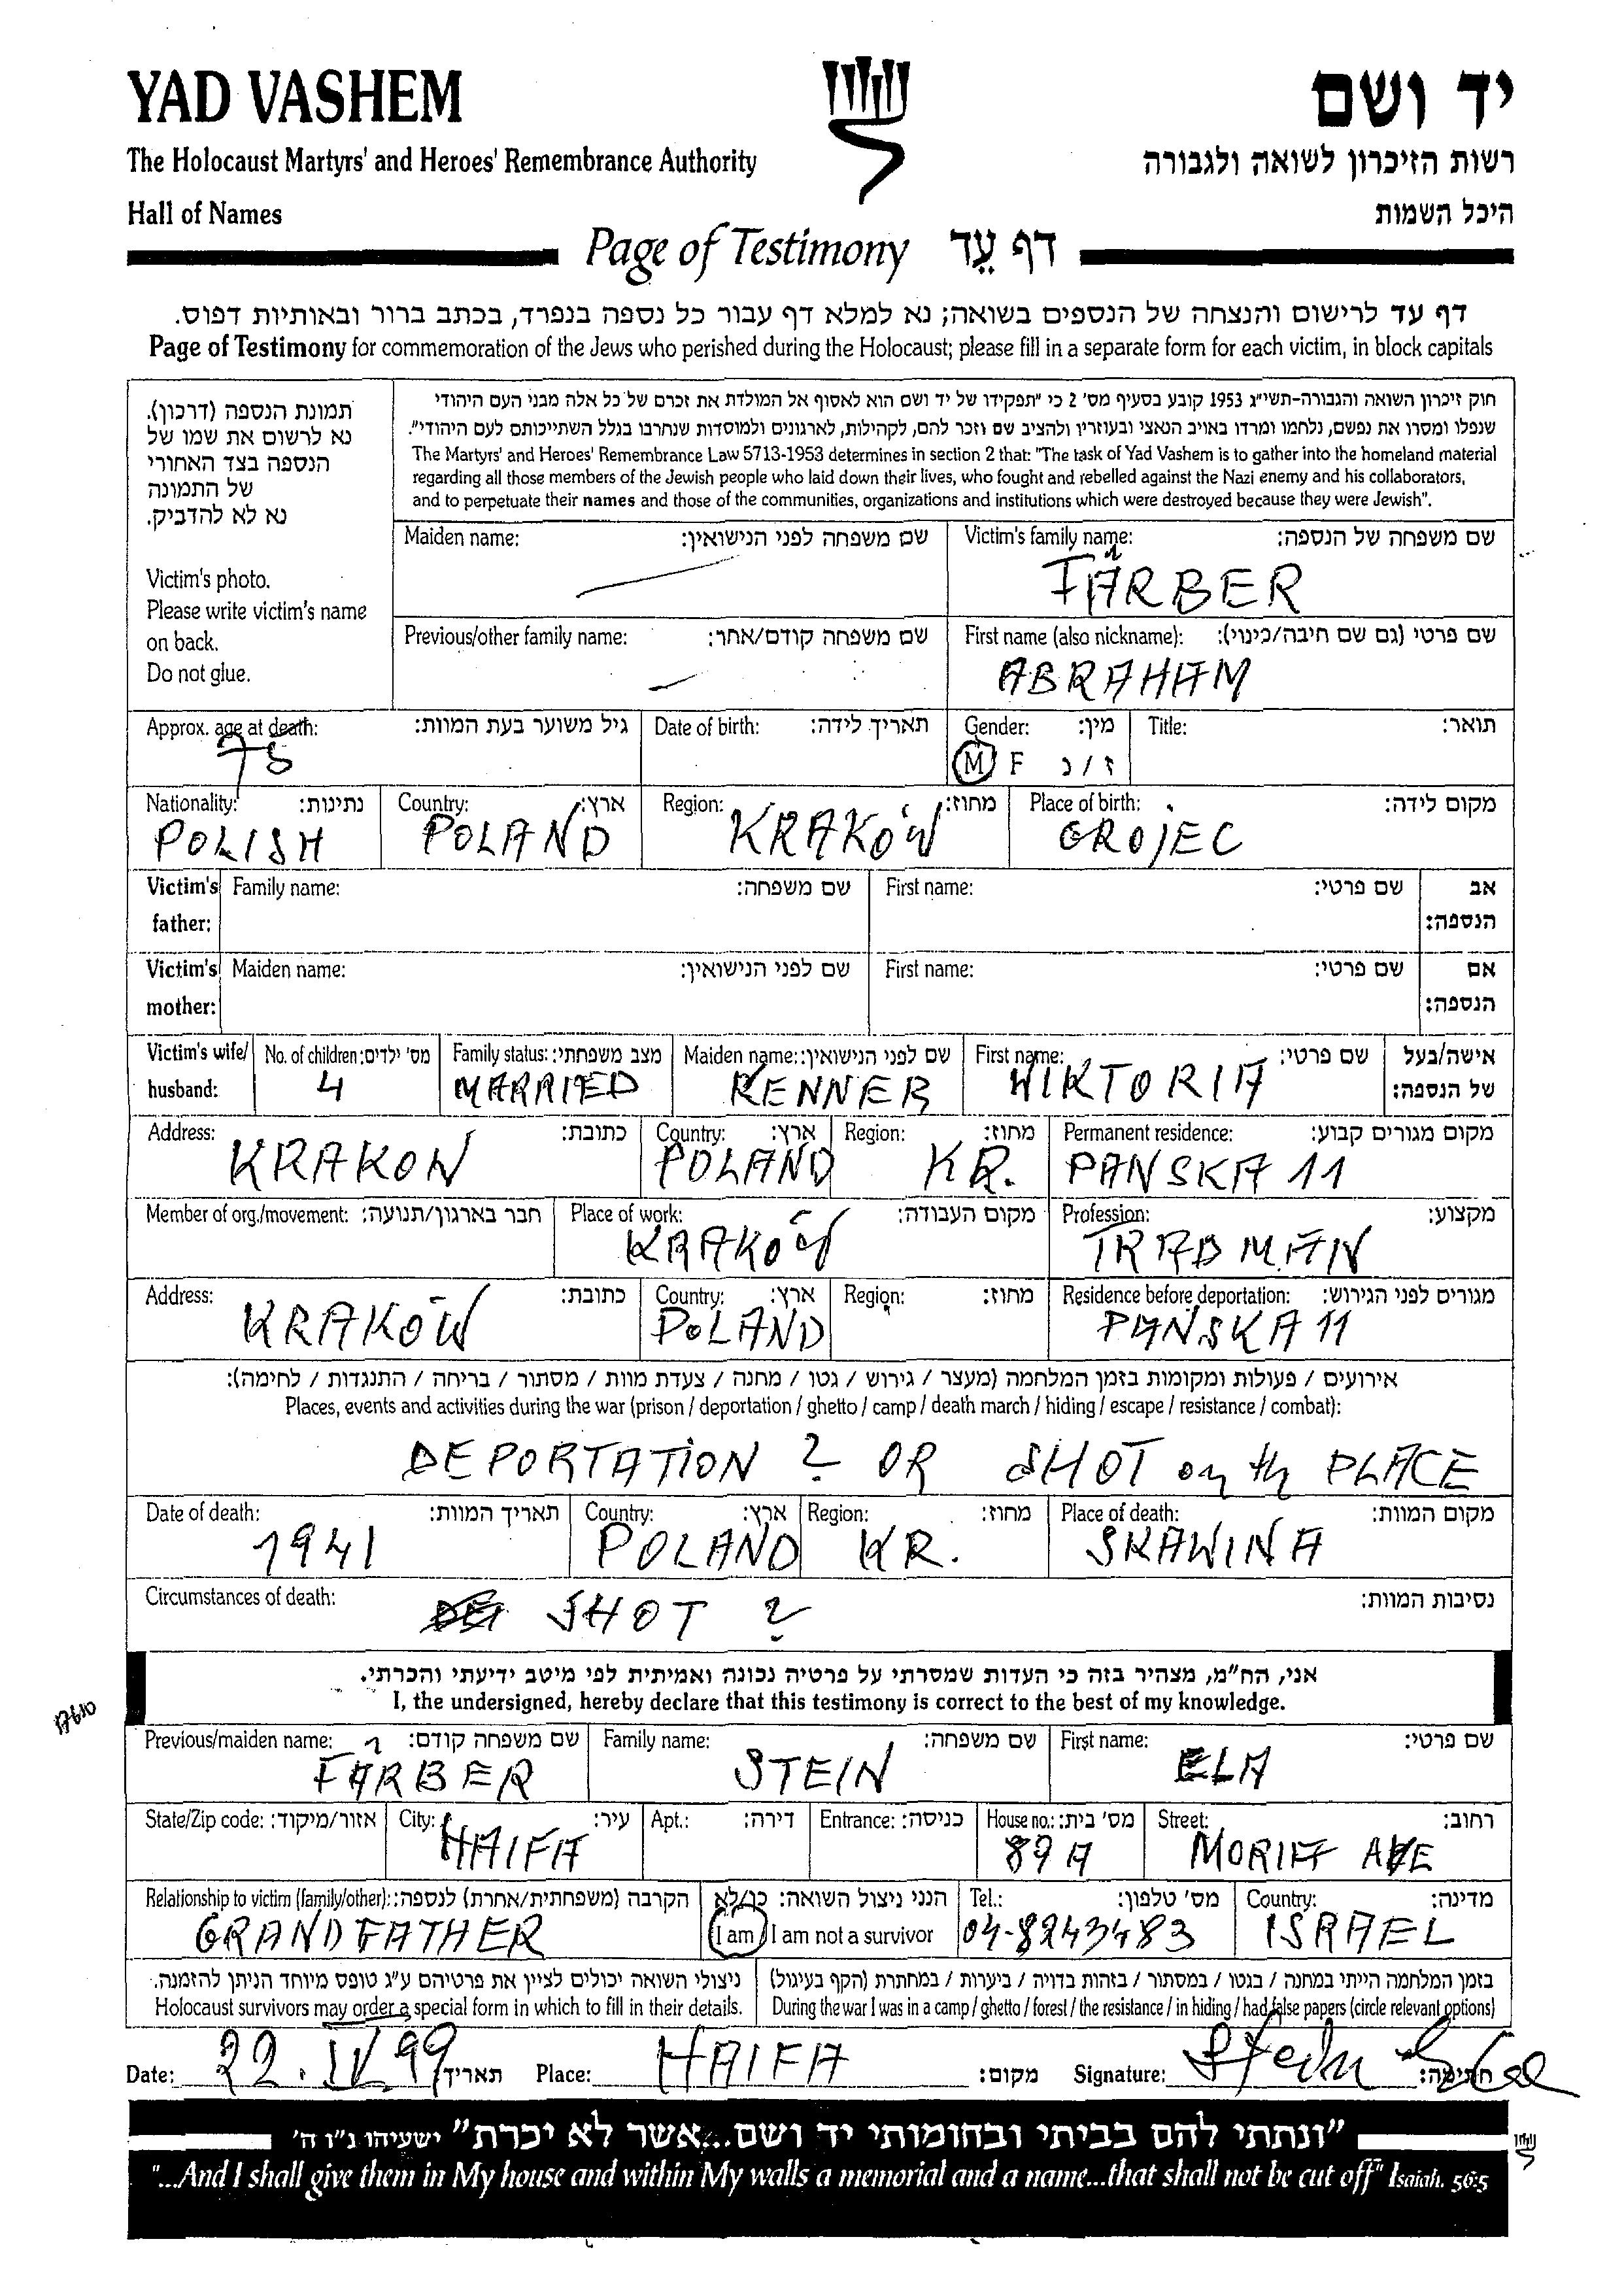 YAD VASHEM
יד ושם
The Holocaust Martyrs' and Heroes' Remembrance Authority
רשות הזיכרון לשואה ולגבורה
Hall of Names
היכל השמות
Page of Testimony דף עֵד
דף עד לרישום והנצחה של הנספים בשואה; נא למלא דף עבור כל נספה בנפרד, בכתב ברור ובאותיות דפוס.
Page of Testimony for commemoration of the Jews who perished during the Holocaust; please fill in a separate form for each victim, in block capitals
תמונת הנספה (דרכון).
נא לרשום את שמו של
הנספה בצד האחורי
של התמונה
נא לא להדביק.
Victim's photo.
Please write victim's name
on back.
Do not glue.
חוק זיכרון השואה והגבורה-תשי"ג 1953 קובע בסעיף מס' 2 כי "תפקידו של יד ושם הוא לאסוף אל המולדת את זכרם של כל אלה מבני העם היהודי
שנפלו ומסרו את נפשם, נלחמו ומרדו באויב הנאצי ובעוזריו ולהציב שם וזכר להם, לקהילות, לארגונים ולמוסדות שנחרבו בגלל השתייכותם לעם היהודי".
The Martyrs' and Heroes' Remembrance Law 5713-1953 determines in section 2 that: "The task of Yad Vashem is to gather into the homeland material
regarding all those members of the Jewish people who laid down their lives, who fought and rebelled against the Nazi enemy and his collaborators,
and to perpetuate their names and those of the communities, organizations and institutions which were destroyed because they were Jewish".
Maiden name: שם משפחה לפני הנישואין: Victim's family name: שם משפחה של הנספה:
FARBER
Previous/other family name: שם משפחה קודם/אחר: First name (also nickname): שם פרטי (גם שם חיבה/כינוי):
ABRAHAM
Approx. age at death: גיל משוער בעת המוות: Date of birth: תאריך לידה: Gender: מין: Title: תואר:
75 M F ז/נ
Nationality: נתינות: Country: ארץ: Region: מחוז: Place of birth: מקום לידה:
POLISH POLAND KRAKÓW GROJEC
Victim's father: Family name: שם משפחה: First name: שם פרטי: אב הנספה:
Victim's mother: Maiden name: שם לפני הנישואין: First name: שם פרטי: אם הנספה:
Victim's wife/ husband: No. of children: מס' ילדים: Family status: מצב משפחתי: Maiden name: שם לפני הנישואין: First name: שם פרטי: אישה/בעל של הנספה:
4 MARRIED KENNER WIKTORIA
Address: כתובת: Country: ארץ: Region: מחוז: Permanent residence: מקום מגורים קבוע:
KRAKOW POLAND KR. PANSKA 11
Member of org./movement: חבר בארגון/תנועה: Place of work: מקום העבודה: Profession: מקצוע:
KRAKÓW TRADMAN
Address: כתובת: Country: ארץ: Region: מחוז: Residence before deportation: מגורים לפני הגירוש:
KRAKÓW POLAND PANSKA 11
אירועים / פעולות ומקומות בזמן המלחמה (מעצר / גירוש / גטו / מחנה / צעדת מוות / מסתור / בריחה / התנגדות / לחימה):
Places, events and activities during the war (prison / deportation / ghetto / camp / death march / hiding / escape / resistance / combat):
DEPORTATION ? OR SHOT on th PLACE
Date of death: תאריך המוות: Country: ארץ: Region: מחוז: Place of death: מקום המוות:
1941 POLAND KR. SKAWINA
Circumstances of death: נסיבות המוות:
SHOT ?
אני, הח"מ, מצהיר בזה כי העדות שמסרתי על פרטיה נכונה ואמיתית לפי מיטב ידיעתי והכרתי.
I, the undersigned, hereby declare that this testimony is correct to the best of my knowledge.
Previous/maiden name: שם משפחה קודם: Family name: שם משפחה: First name: שם פרטי:
FARBER STEIN ELA
State/Zip code: אזור/מיקוד: City: עיר: Apt.: דירה: Entrance: כניסה: House no.: מס' בית: Street: רחוב:
HAIFA 89A MORIA AVE
Relationship to victim (family/other): הקרבה (משפחתית/אחרת) לנספה: הנני ניצול השואה: כן/לא Tel.: מס' טלפון: Country: מדינה:
GRANDFATHER I am / I am not a survivor 04-8243483 ISRAEL
ניצולי השואה יכולים לציין את פרטיהם ע"ג טופס מיוחד הניתן להזמנה. בזמן המלחמה הייתי במחנה / בגטו / במסתור / בזהות בדויה / ביערות / במחתרת (הקף בעיגול)
Holocaust survivors may order a special form in which to fill in their details. During the war I was in a camp / ghetto / forest / the resistance / in hiding / had false papers (circle relevant options)
Date: 22.IV.99 תאריך Place: HAIFA מקום: Signature: Stein Ela חתימה:
"ונתתי להם בביתי ובחומותי יד ושם...אשר לא יכרת" ישעיהו נ"ו ה'
"...And I shall give them in My house and within My walls a memorial and a name...that shall not be cut off" Isaiah. 56:5